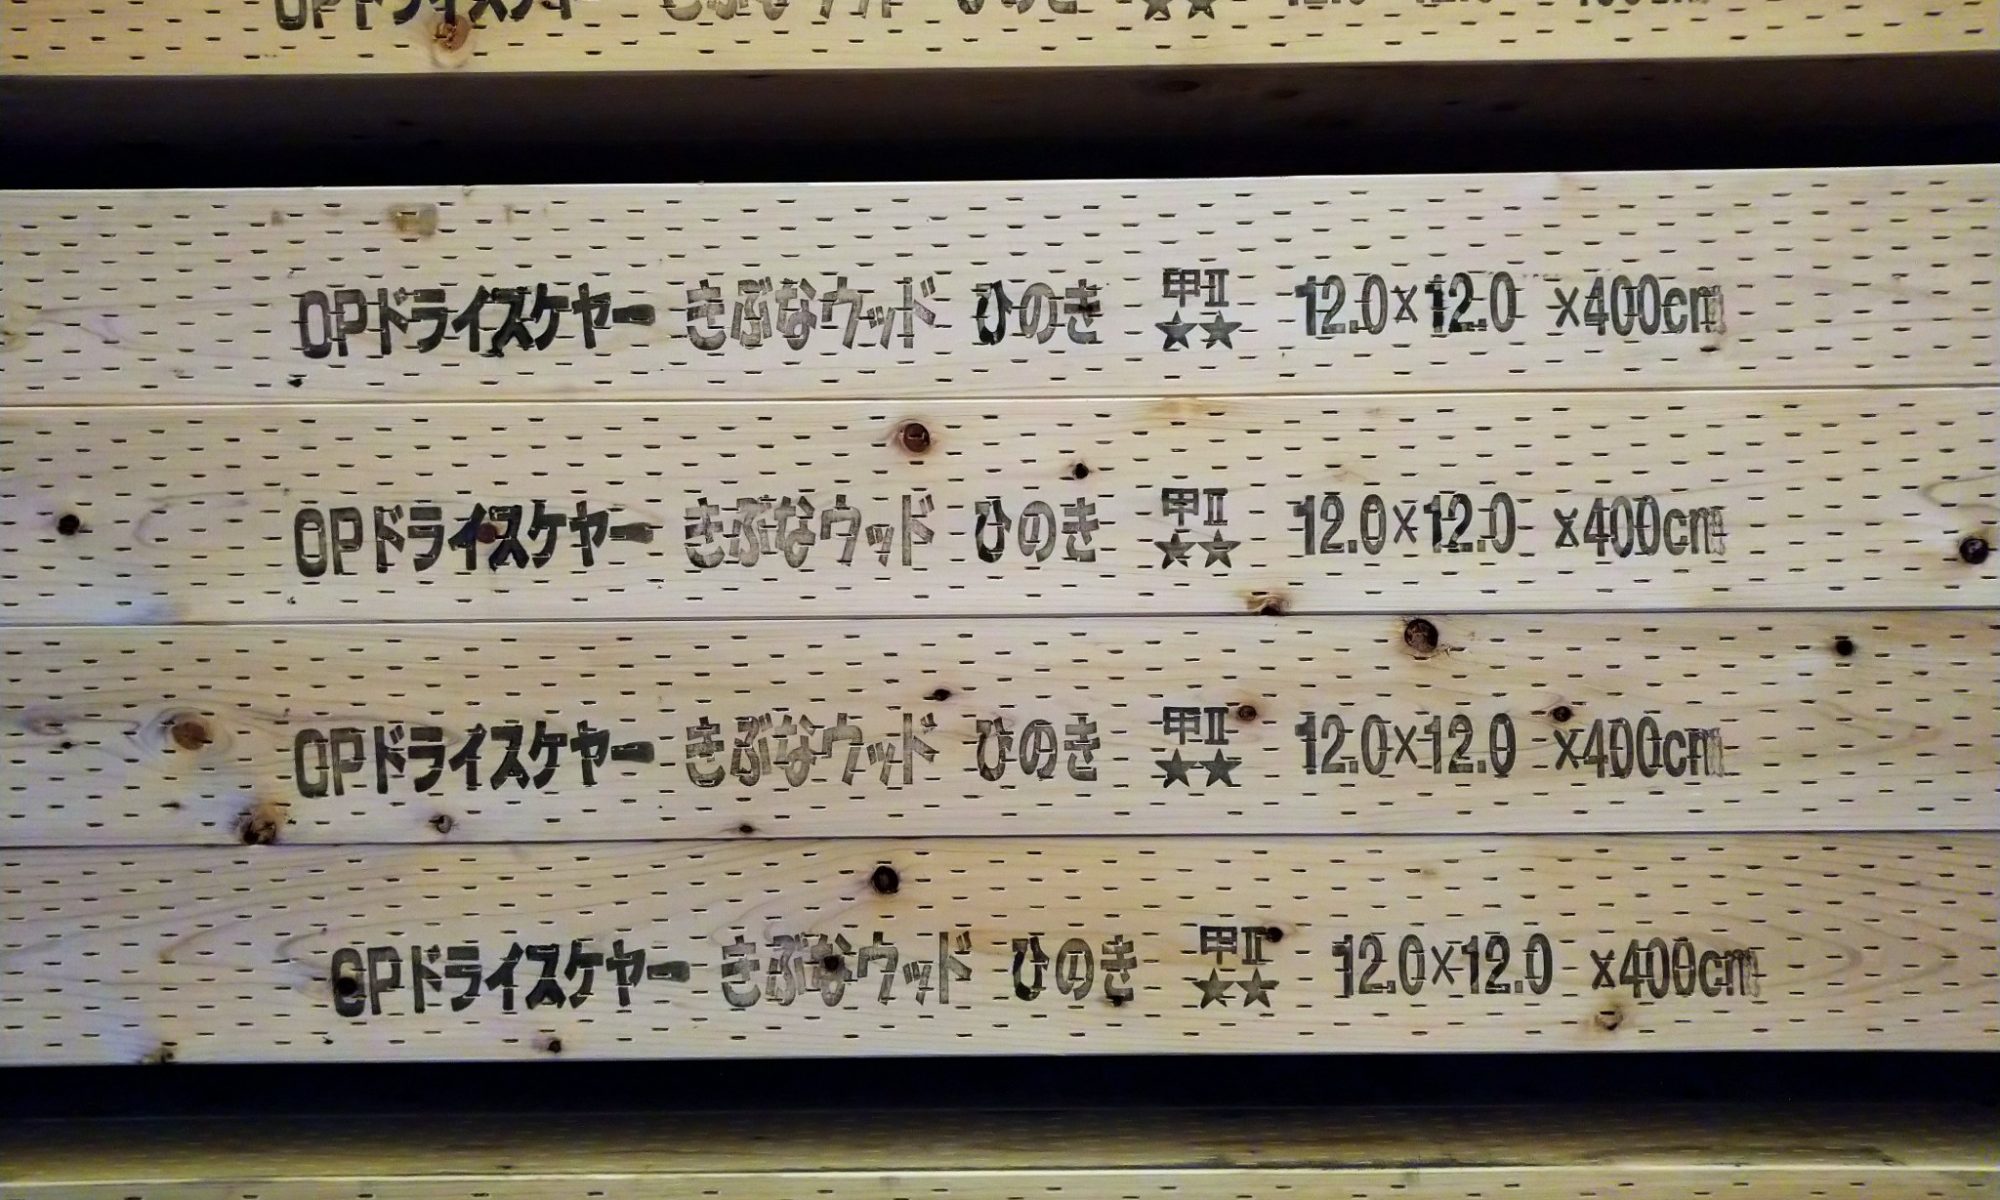 OPドライスケヤー きぶなウッド ひのき 甲Ⅱ ★★ 12.0×12.0 ×400cm
OPドライスケヤー きぶなウッド ひのき 甲Ⅱ ★★ 12.0×12.0 ×400cm
OPドライスケヤー きぶなウッド ひのき 甲Ⅱ ★★ 12.0×12.0 ×400cm
OPドライスケヤー きぶなウッド ひのき 甲Ⅱ ★★ 12.0×12.0 ×400cm